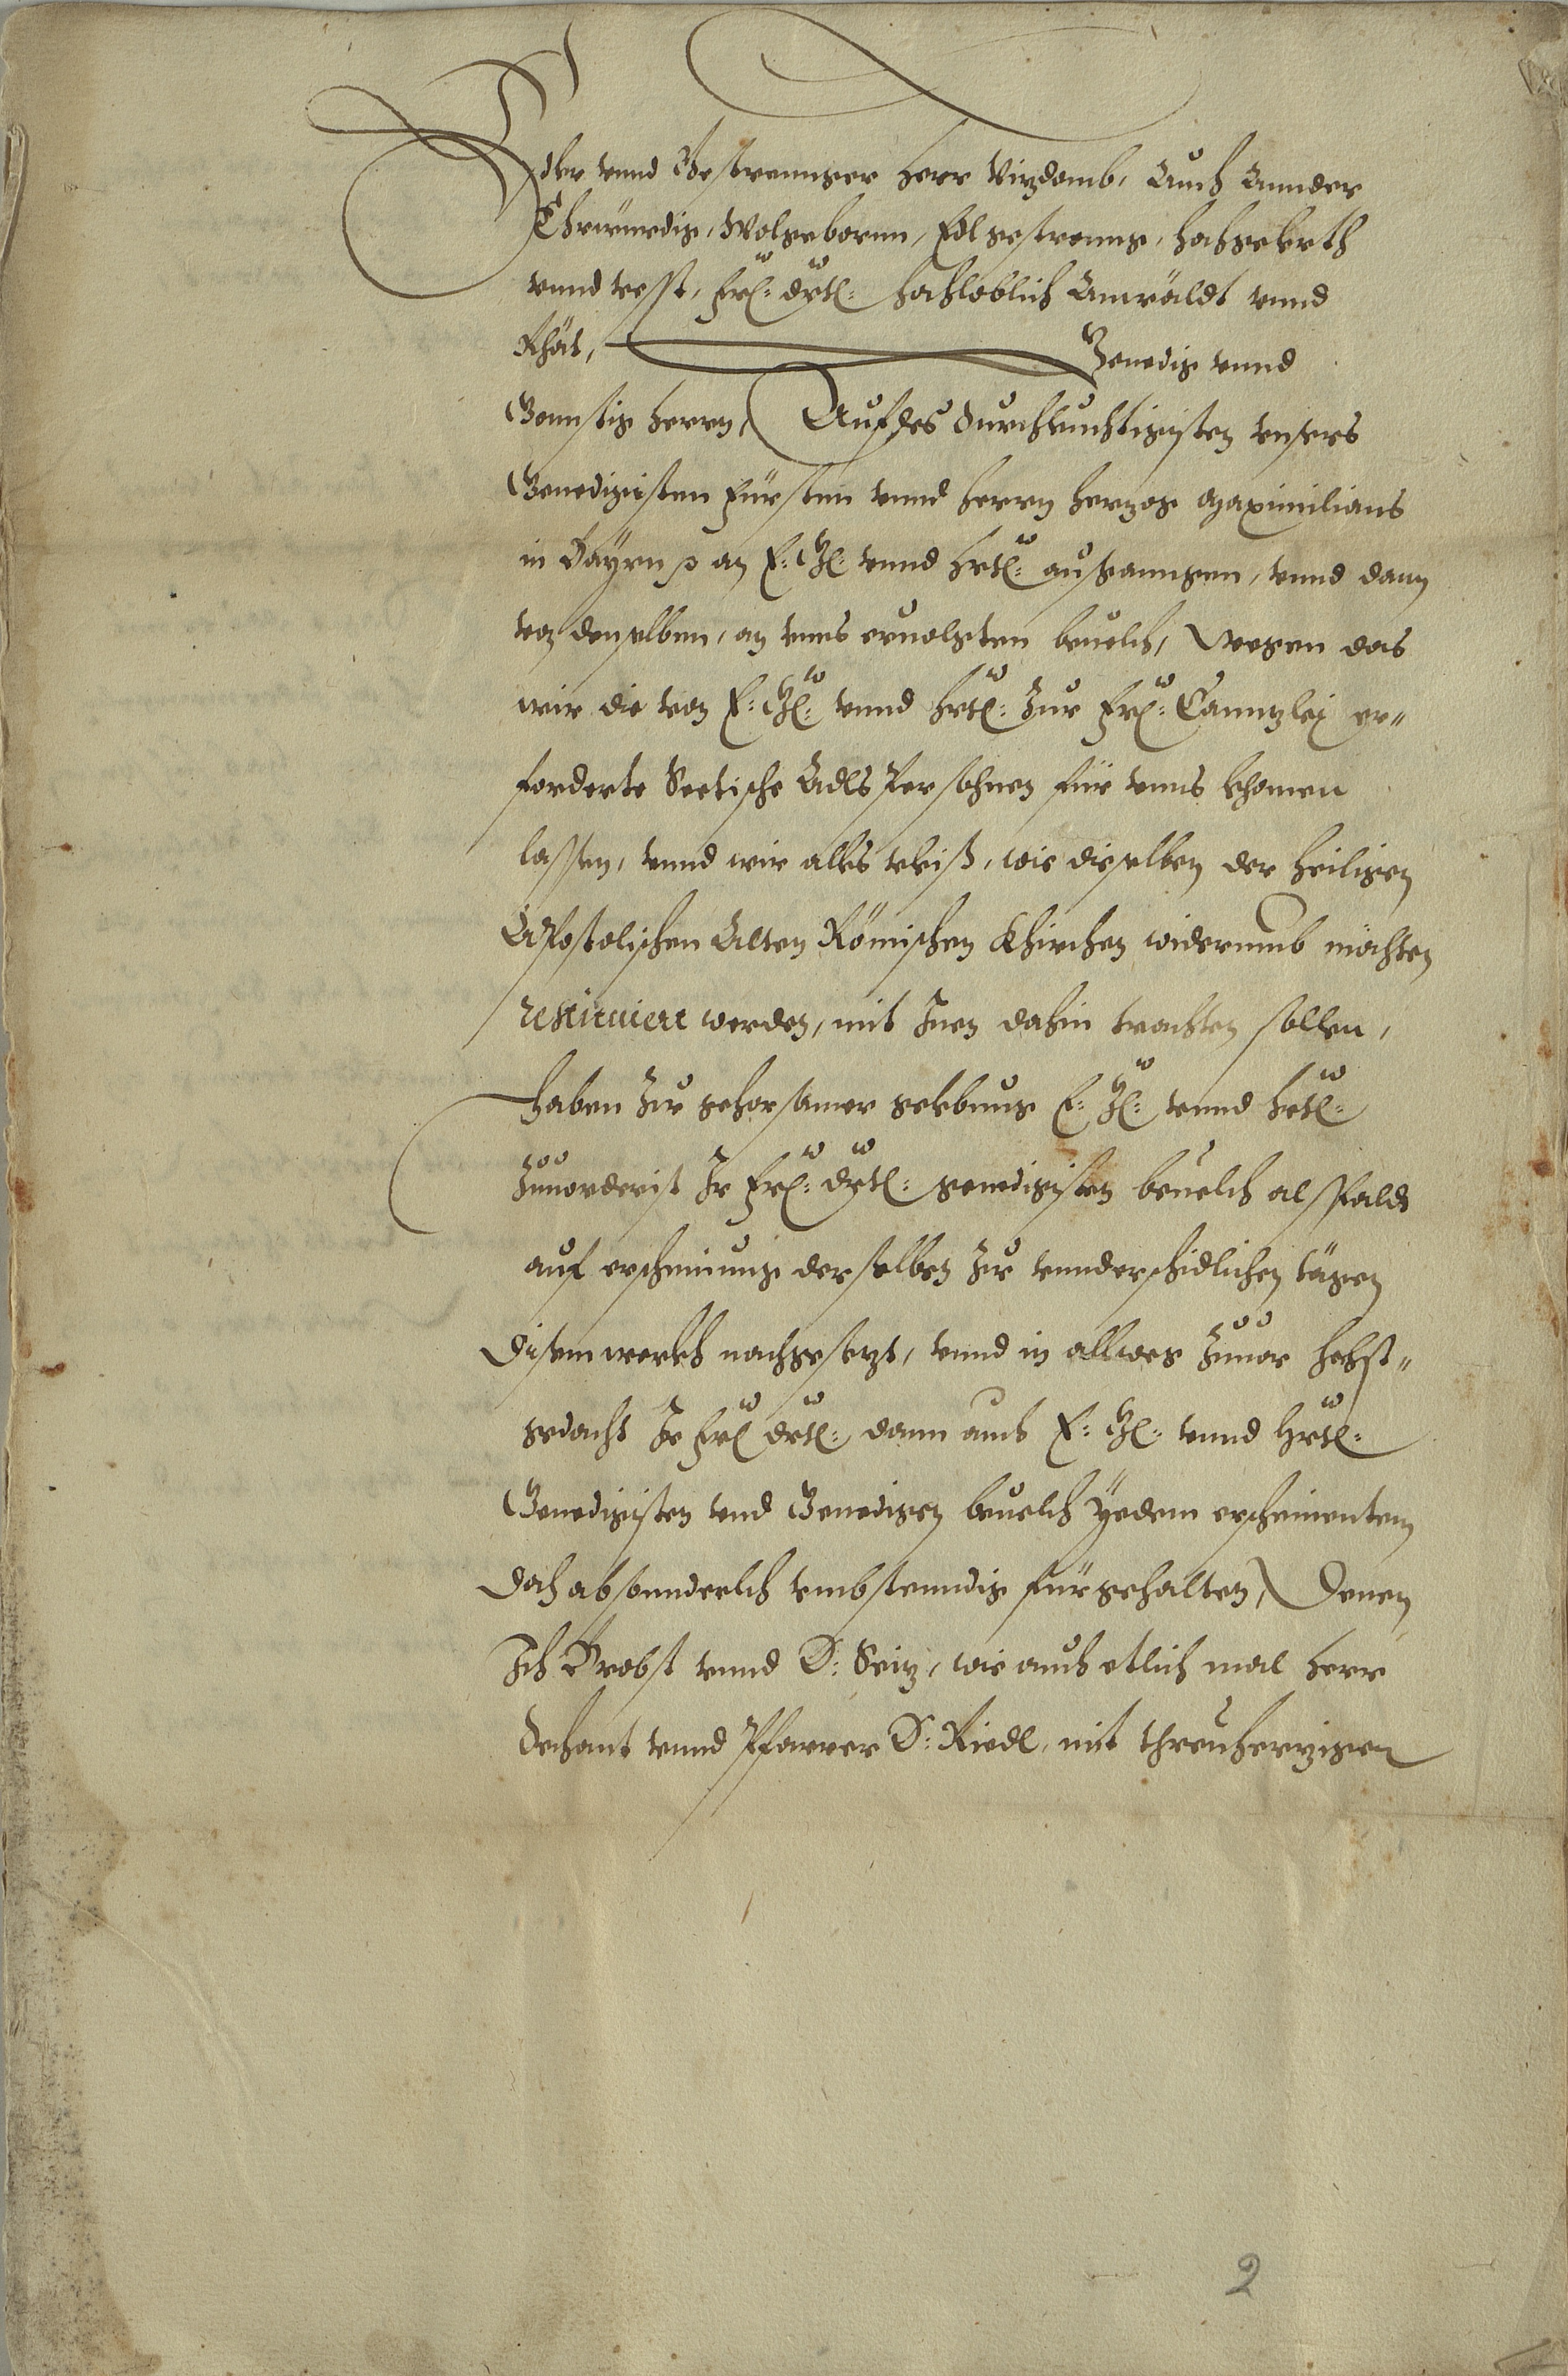 Edler vnnd Gestrennger Herr Vizdomb, Auch Annder
Ehrwürdig, Wolgeborne, Edl gestreng, hochgelerth
vnnd vesst, Frl: Drtl: hochloblich Anwäldt vnnd
Rhät, Genedig vnnd
Gonnstig herrn, Auf des durchleuchtigisten vnsers
Genedigisten Fürsten vnnd herrn herzog Maximilians
in Bayrn p an E: Gl: vnnd Hrtl: ausganngen, vnnd dann
von denselben, an vnns eruolgten beuelch, wegen das
wir die von E: Gl: vnnd Hrtl: Zur Frl: Canntzley er-
forderte Sectische Adls Persohnen für vnns khomen
lassen, vnnd wir alles vleiß, wie dieselben der heiligen
Apostolischen Alten Römischen Khirchen widerumb möchten
restituiert werden, mit Inen dahin trachten sollen,
Haben Zu gehorsamer gelebung E: Gl: vnnd Hrtl:
Zuuorderist Ir Frl: Drtl: genedigisten beuelch alsspaldt
auf erscheinung derselben Zu vnnderschidlichen tägen
disem werkh nachgesetzt, vnnd in allweg Zuuor hochst-
gedacht Ir Frl Drtl: dann auch E: Gl: vnnd Hrtl:
Genedigisten vnd Genedigen beuelch Yedem erscheinentem
doch absonnderlich vmbstenndig fürgehalten, Denen
Ich Probst vnnd D: Seiz, wie auch etlich mal Herr
Dechant vnnd Pfarrer D: Riedl, mit threuherzigen
2